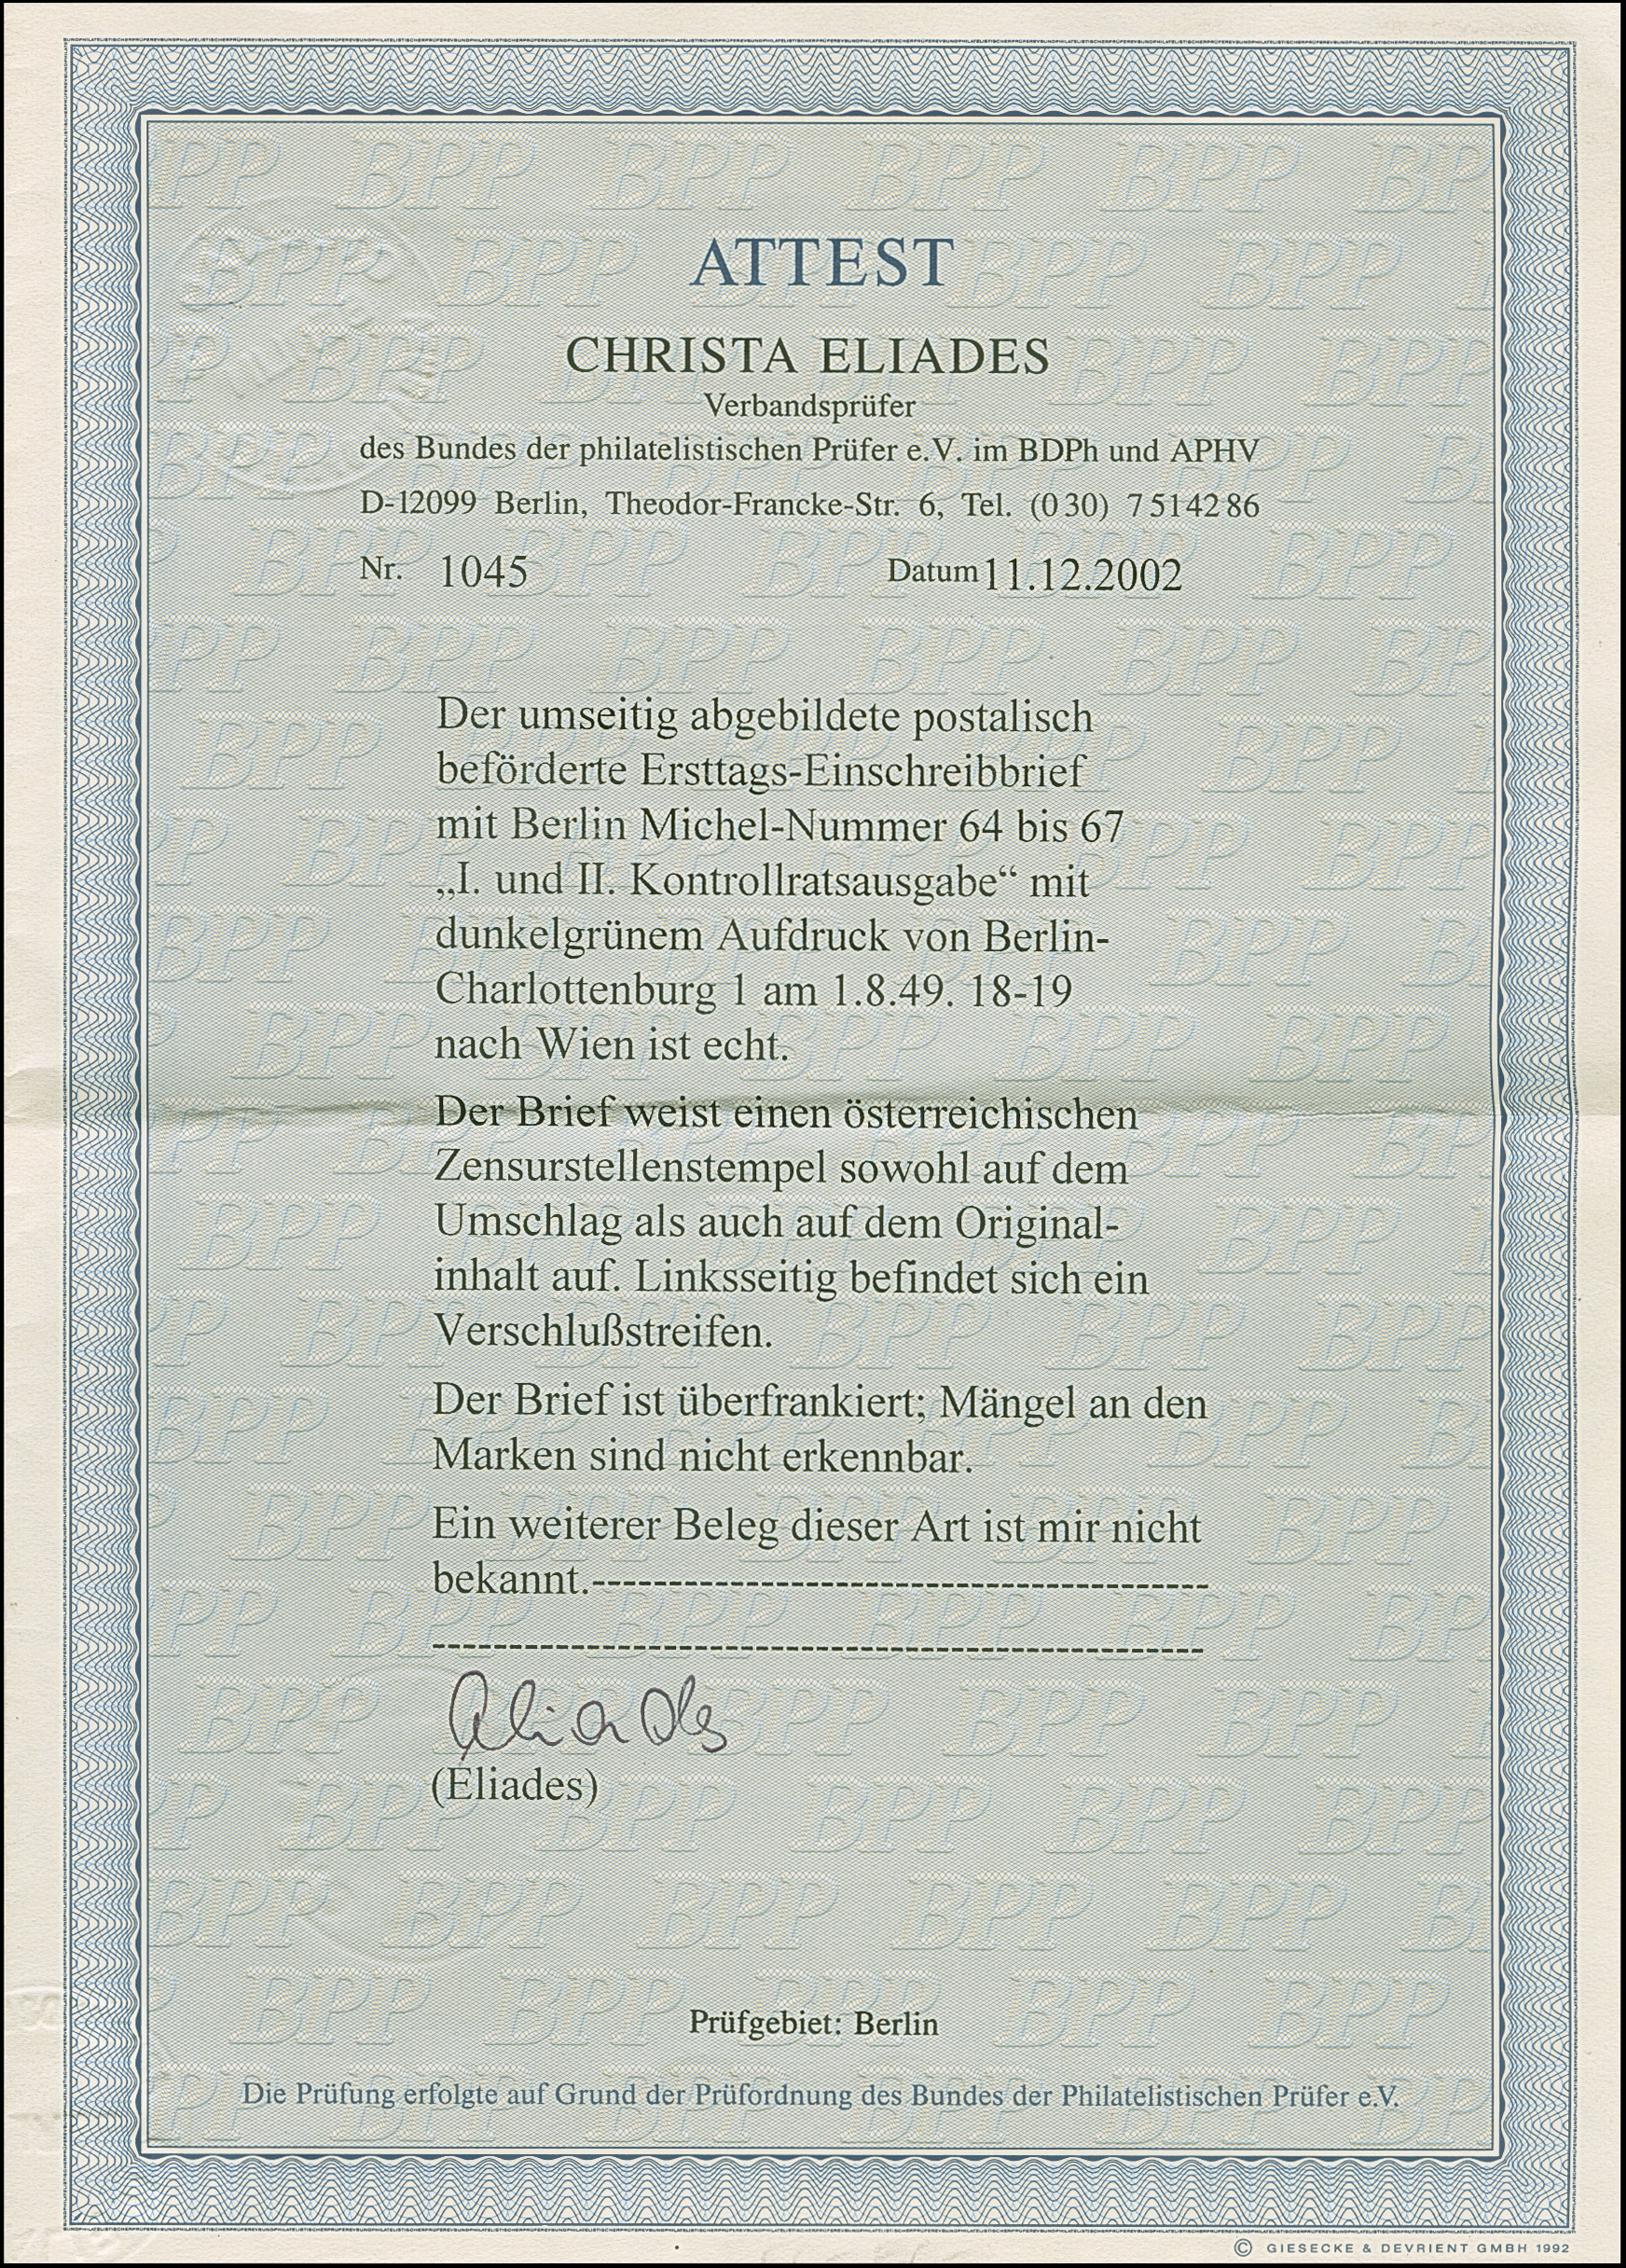 ATTEST
CHRISTA ELIADES
Verbandsprüfer
des Bundes der philatelistischen Prüfer e.V. im BDPh und APHV
D-12099 Berlin, Theodor-Francke-Str. 6, Tel. (0 30) 7 51 42 86
Nr. 1045 Datum 11.12.2002
Der umseitig abgebildete postalisch
beförderte Ersttags-Einschreibbrief
mit Berlin Michel-Nummer 64 bis 67
„I. und II. Kontrollratsausgabe“ mit
dunkelgrünem Aufdruck von Berlin-
Charlottenburg 1 am 1.8.49. 18-19
nach Wien ist echt.
Der Brief weist einen österreichischen
Zensurstellenstempel sowohl auf dem
Umschlag als auch auf dem Original-
inhalt auf. Linksseitig befindet sich ein
Verschlußstreifen.
Der Brief ist überfrankiert; Mängel an den
Marken sind nicht erkennbar.
Ein weiterer Beleg dieser Art ist mir nicht
bekannt.
Eliades
(Eliades)
Prüfgebiet: Berlin
Die Prüfung erfolgte auf Grund der Prüfordnung des Bundes der Philatelistischen Prüfer e.V.
© GIESECKE & DEVRIENT GMBH 1992